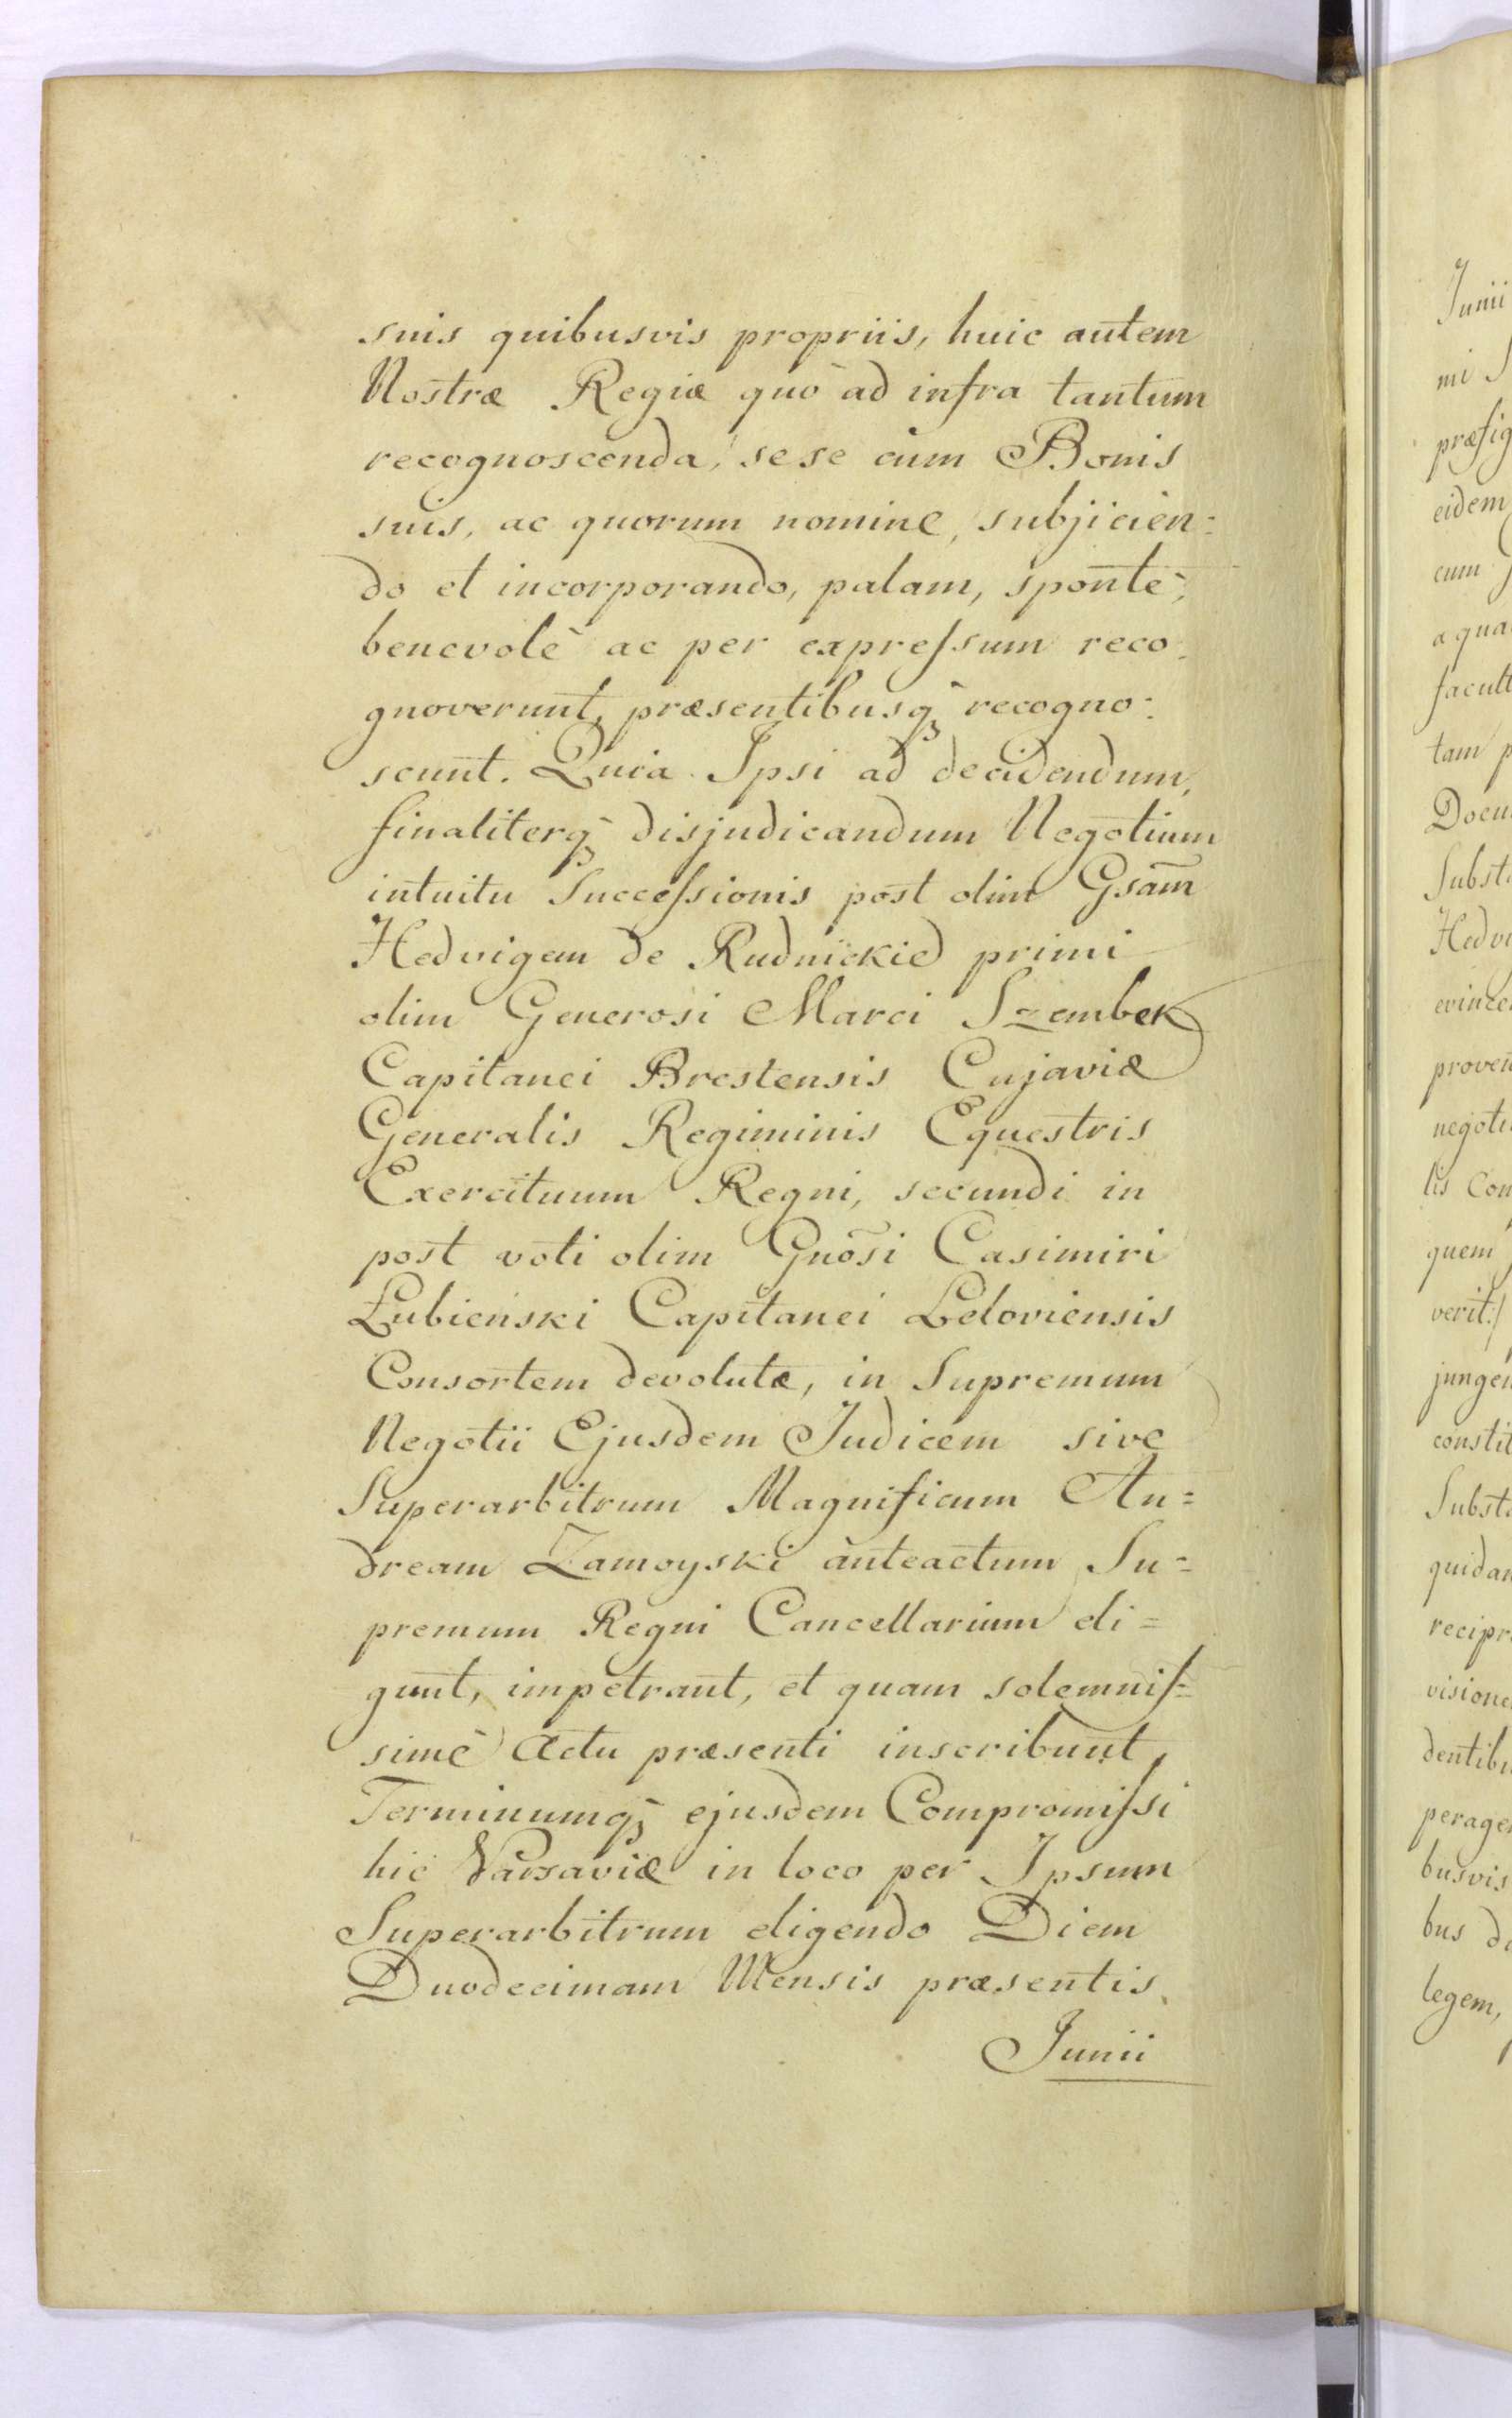 suis quibusvis propriis, huic autem
Nostræ Regiæ quò ad infra tantum
recognoscenda, sese cum Bonis
suis, ac quorum nomine, subjicien:
do et incorporando, palam, sponte,
benevolè ac per expreſsum reco:
gnoverunt, præsentibusq̃ recogno:
scunt. Quia Ipsi ad decidendum,
finaliterq̃ disjudicandum Negotium
intuitu Succeſsionis post olim Gsam̃
Hedvigem de Rudnickie primi
olim Generosi Marci Szembek
Capitanei Brestensis Cujaviæ
Generalis Regiminis Equestris
Exercituum Regni, secundi in
post voti olim Gnõsi Casimiri
Łubieński Capitanei Leloviensis
Consortem devolutæ, in Supremum
Negotii Ejusdem Judicem sive
Superarbitrum Magnificum An=
dream Zamoyski anteactum Su=
premum Regni Cancellarium eli=
gunt, impetrant, et quam solemniſ=
simè Actu præsenti inscribunt,
Terminumq̃ ejusdem Compromiſsi
hic Varsaviæ in loco per Ipsum
Superarbitrum eligendo Diem
Duodecimam Mensis præsentis
Junii
Junii
mi S
præfig
eidem
cum
a qua
facult
tam p
Docu
Subst
Hedvi
evince
proven
negoti
lis Con
quem
verit:/
jungen
constit
Substi
quidam
recipr
visione
dentibu
perage
busvis
bus d
legem,